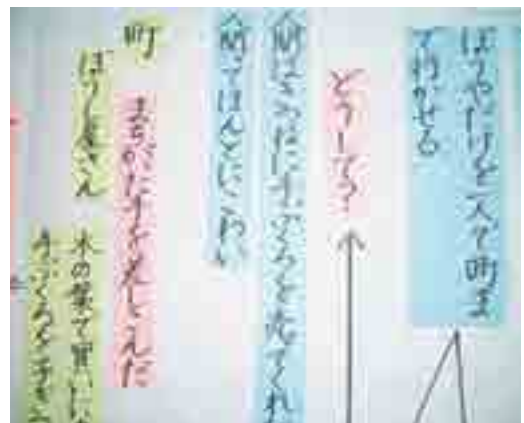 ぼうやだけを一人で町ま
で行かせる
どうして?
人間は 手ぶくろを売ってくれ
人間ってほんとにこわい
町 まちがった手を差しこんだ
ぼうし屋さん 木の葉で買いに
手ぶくろを